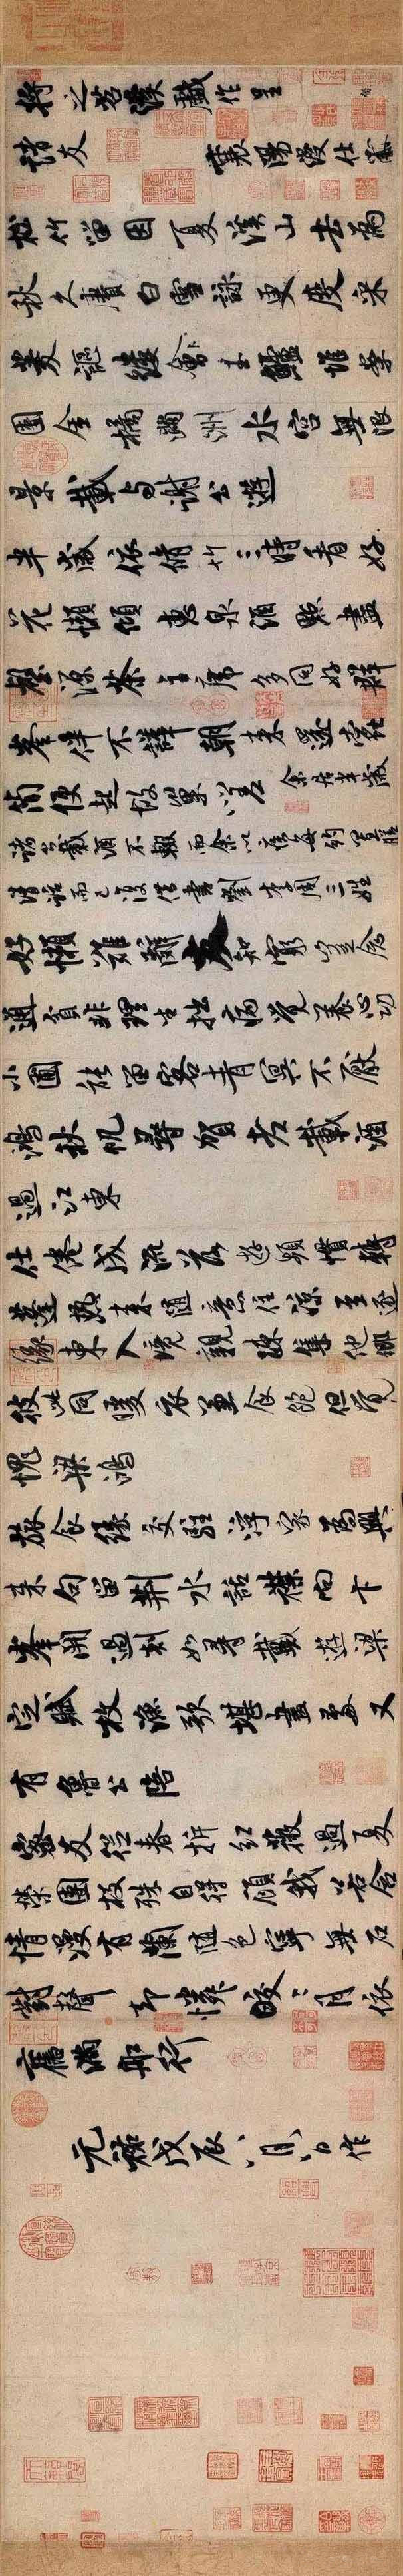 將之苕溪戲作呈
諸友 襄陽漫仕黻
松竹留因夏溪山去為
秋久賡白雪詠更度采
菱謳縷會玉鱸堆案
團金橘滿洲水宮無限
景載與謝公遊
半歲依脩竹三時看好
花懶傾惠泉酒點盡
壑源茶主席多同好群
峰伴不譁朝來還蠹
簡便起故巢嗟 余居半歲
諸公載酒不輟而余以疾每約置膳
清話而已復借書劉李周三姓
好懶難辭友知窮豈念
通貧非理生拙病覺養心功
小圃能留客青冥不厭
鴻秋帆尋賀老載酒
過江東
仕倦成流落遊頻慣轉
蓬熱來隨意住涼至逐
緣東入境親疎集他鄉
彼此同暖衣兼食飽但覺
愧梁鴻
旅食緣交駐浮家為興
來句留荊水話襟向卞
峰開過剡如尋戴遊梁
定賦枚漁歌堪畫處又
有魯公陪
密友從春拆紅薇過夏
榮團枝殊自得顧我若含
情漫有蘭隨色寧無石
對聲卻憐皎〻月依
舊滿船行
元祐戊辰八月八日作